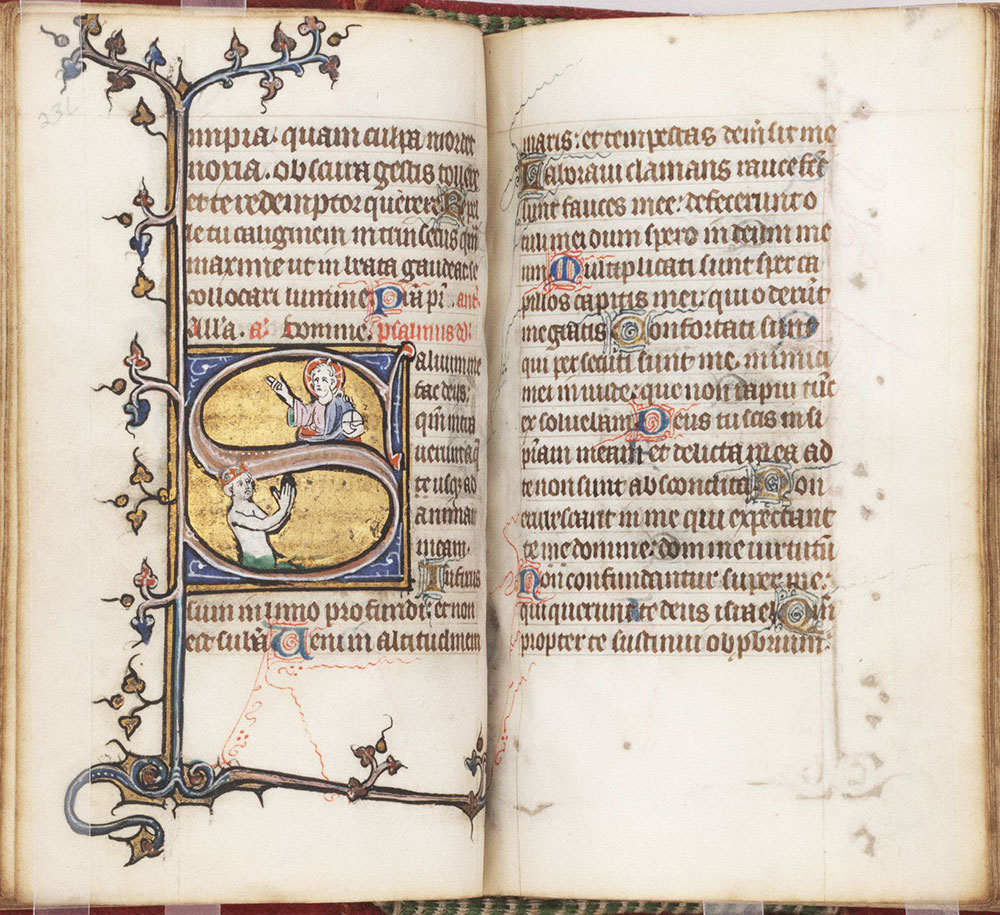 impia. quam culpa mordet
noxia. obscura gestis tollere
et te redemptor querere Repel
le tu caliginem intrinsecus qm
maxime ut in beata gaudeat se
collocari lumine Pr̄a pr̄. ant.
alla. a. Domine. psalmus dd.
Saluum me
fac deus.
qm̄ intra
uerunt aq̄
te usq; ad
animam
meam.
Infixus
sum in limo profundi: et non
est substā Ueni in altitudinem
maris: et tempestas dem̄sit me
Laboraui clamans rauce fc̄e
sunt fauces mee: defecerunt o
culi mei dum spero in deum me
um Multiplicati sunt super ca
pillos capitis mei: qui oderūt
me gratis Confortati sunt
qui persecuti sunt me. inimici
mei iniuste: que non rapui tūc
exsoluebam Deus tu scis insi
piam meam: et delicta mea ad
te non sunt abscondita Non
erubescant in me qui expectant
te me domine: domine uirtutū
Non confundantur super me:
qui querunt te deus israel Qm̄
propter te sustinui obprbrium: